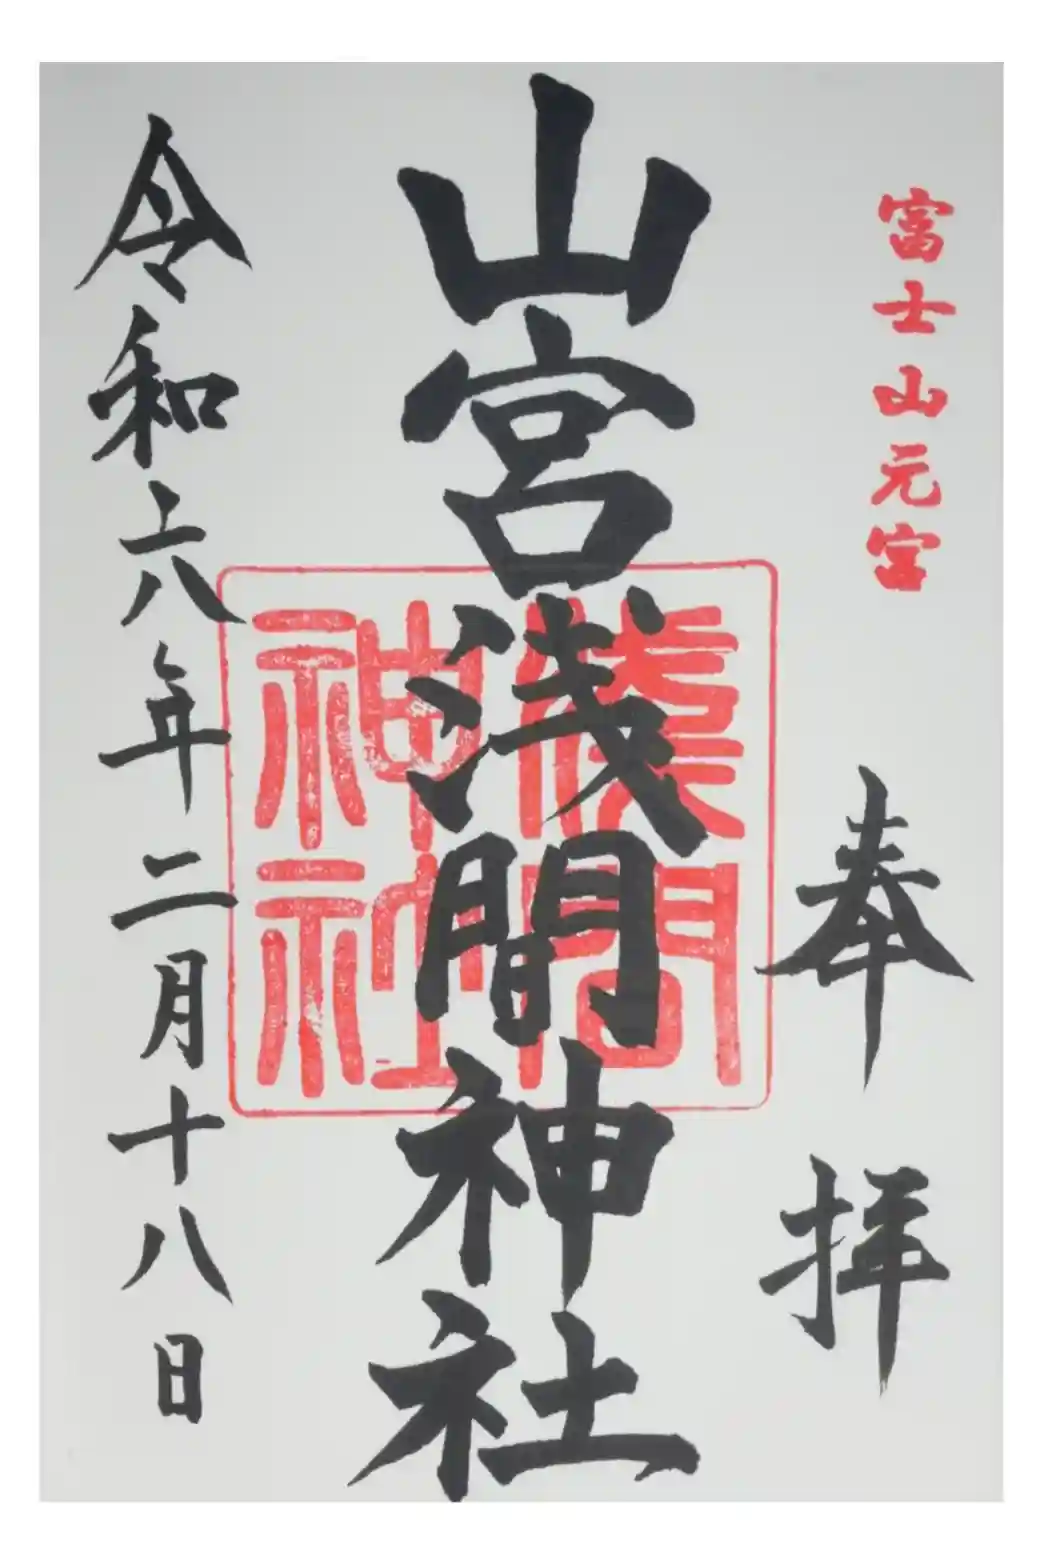 富士山元宮
奉拝
山宮浅間神社
淺間
神社
令和六年二月十八日